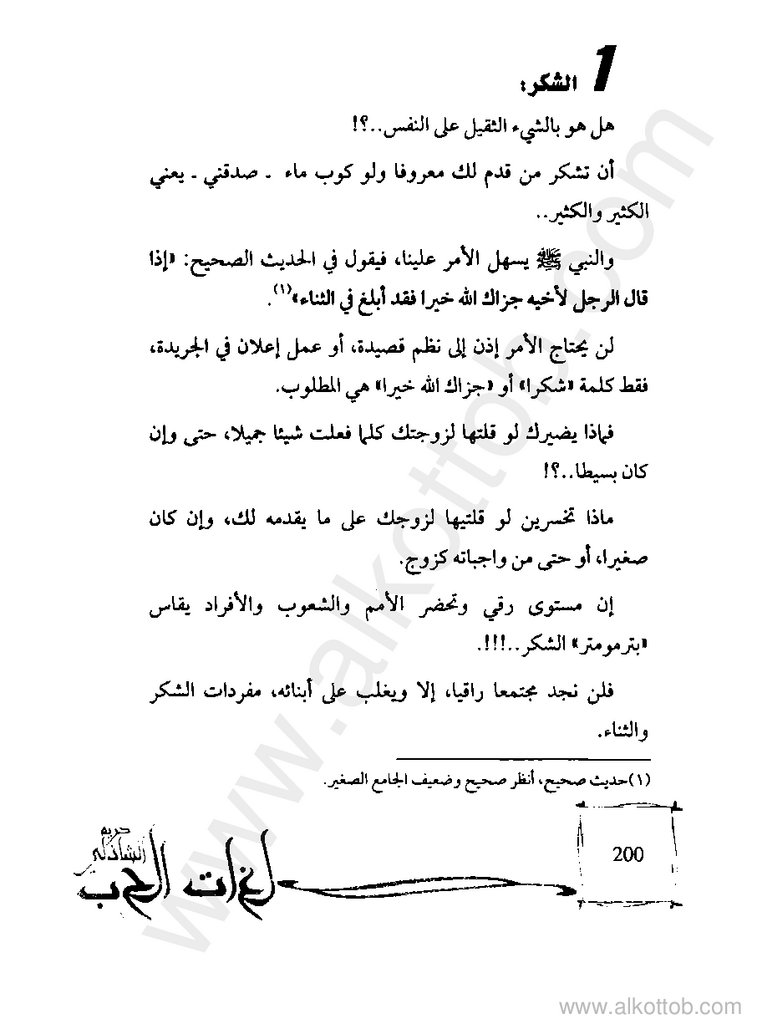 1 الشكر:
هل هو بالشيء الثقيل على النفس..؟!
أن تشكر من قدم لك معروفا ولو كوب ماء - صدقني - يعني
الكثير والكثير..
والنبي ﷺ يسهل الأمر علينا، فيقول في الحديث الصحيح: «إذا
قال الرجل لأخيه جزاك الله خيرا فقد أبلغ في الثناء»(١).
لن يحتاج الأمر إذن إلى نظم قصيدة، أو عمل إعلان في الجريدة،
فقط كلمة «شكرا» أو «جزاك الله خيرا» هي المطلوب.
فماذا يضيرك لو قلتها لزوجتك كلما فعلت شيئا جميلا، حتى وإن
كان بسيطا..؟!
ماذا تخسرين لو قلتيها لزوجك على ما يقدمه لك، وإن كان
صغيرا، أو حتى من واجباته كزوج.
إن مستوى رقي وتحضر الأمم والشعوب والأفراد يقاس
«بترمومتر» الشكر..!!!.
فلن نجد مجتمعا راقيا، إلا ويغلب على أبنائه، مفردات الشكر
والثناء.
(١) حديث صحيح، أنظر صحيح وضعيف الجامع الصغير.
200
كريم
الشاذلي
لغات الحب
www.alkottob.com
www.alkottob.com